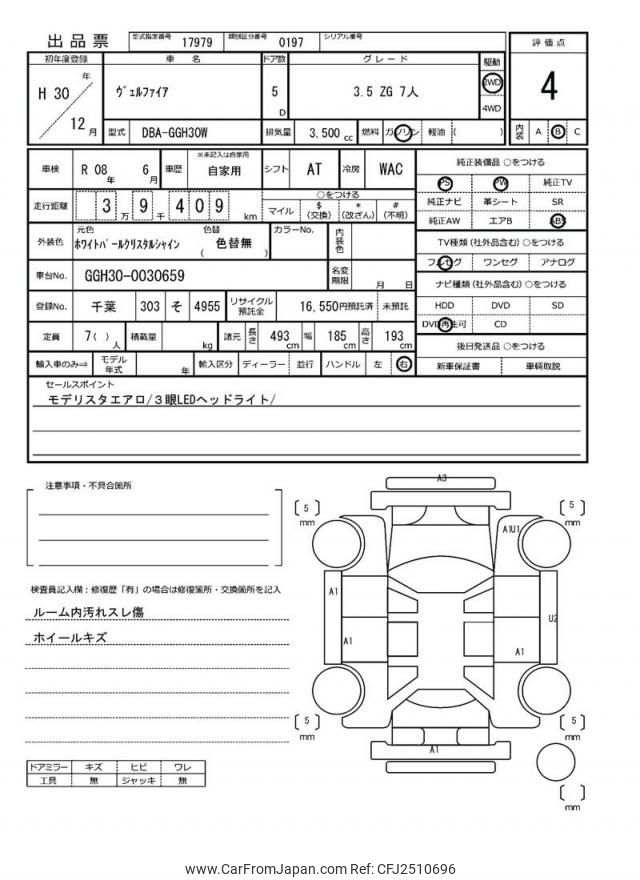 出品票 型式指定番号 17979 類別区分番号 0197 シリアル番号
評価点
4
内装 A B C
初年度登録 車名 ドア数 グレード 駆動
H 30 年 12 月
ヴェルファイア
5 D
3.5 ZG 7人
2WD
4WD
型式 DBA-GGH30W 排気量 3,500 cc 燃料 ガソリン 軽油 ( )
車検 R 08 年 6 月 車歴 ※未記入は自家用 自家用 シフト AT 冷房 WAC
走行距離 3 万 9 千 4 0 9 km
○をつける
マイル $ (交換) * (改ざん) # (不明)
外装色 元色 ホワイトパールクリスタルシャイン 色替 ( 色替無 ) カラーNo. 内装色
車台No. GGH30-0030659 名変期限 月 日
登録No. 千葉 303 そ 4955 リサイクル預託金 16,550円預託済 未預託
定員 7( ) 人 積載量 kg 諸元 長さ 493 cm 幅 185 cm 高さ 193 cm
輸入車のみ⇒ モデル年式 年 輸入区分 ディーラー 並行 ハンドル 左 右
純正装備品 ○をつける
PS PW 純正TV
純正ナビ 革シート SR
純正AW エアB ABS
TV種類(社外品含む)○をつける
フルセグ ワンセグ アナログ
ナビ種類(社外品含む)○をつける
HDD DVD SD
DVD再生可 CD
後日発送品 ○をつける
新車保証書 車輌取説
セールスポイント
モデリスタエアロ/3眼LEDヘッドライト/
注意事項・不具合箇所
検査員記入欄:修復歴「有」の場合は修復箇所・交換箇所を記入
ルーム内汚れスレ傷
ホイールキズ
ドアミラー キズ ヒビ ワレ
工具 無 ジャッキ 無
A3
[ 5 ] mm
[ 5 ] mm
A1U1
A1
U2
A1
A1
[ 5 ] mm
[ 5 ] mm
A1
[ ] mm
www.CarFromJapan.com Ref: CFJ2510696